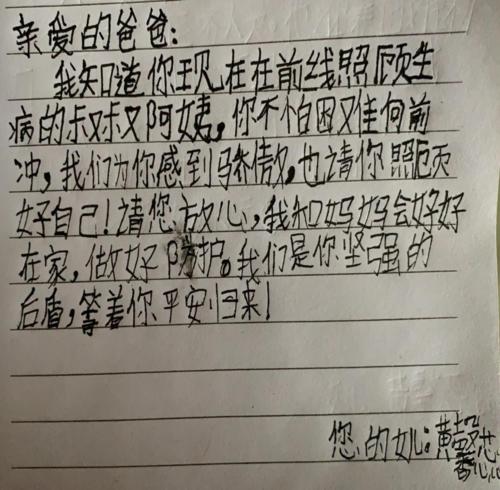 亲爱的爸爸:
我知道你现在在前线照顾生
病的叔叔阿姨,你不怕困难向前
冲,我们为你感到骄傲,也请你照顾
好自己!请您放心,我知妈妈会好好
在家,做好防护。我们是你坚强的
后盾,等着你平安归来!
您的女儿:黄馨芯